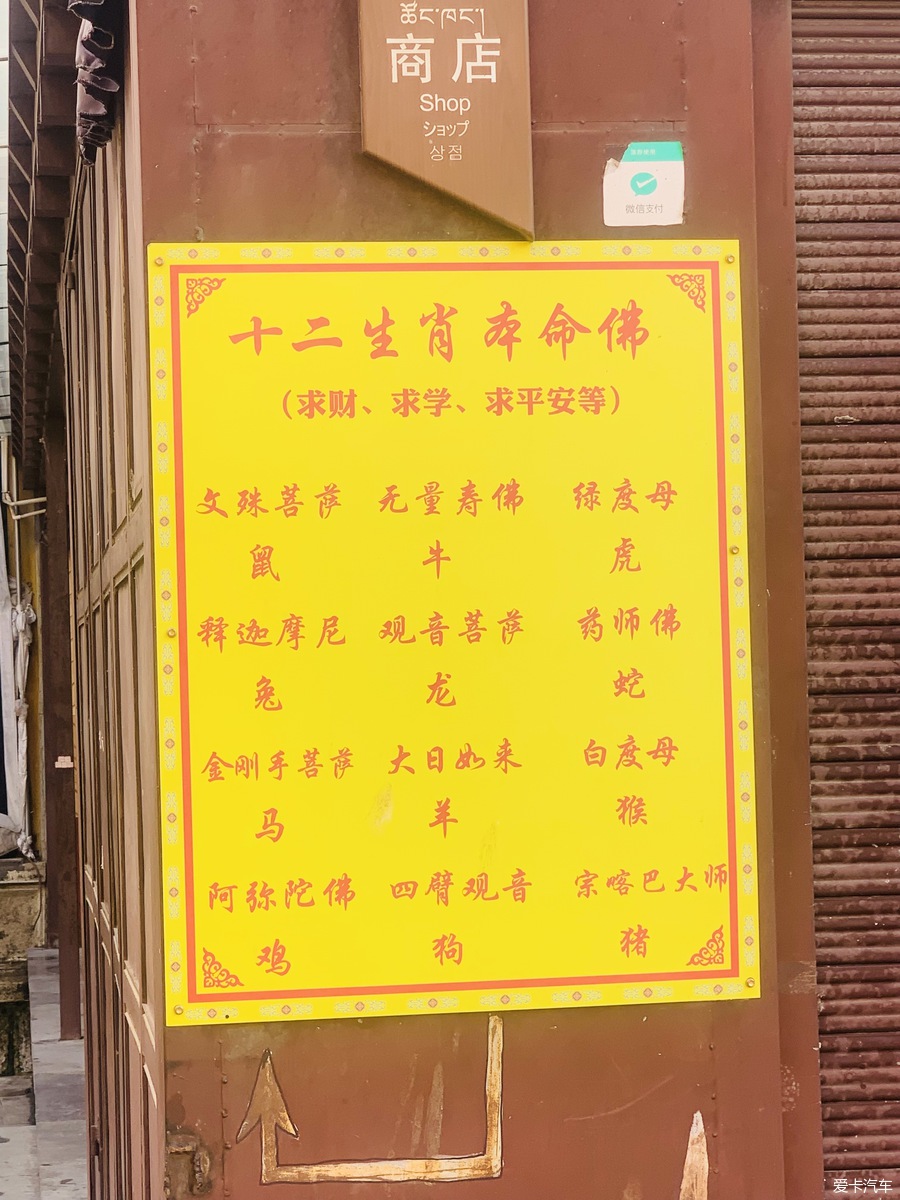 ཚོང་ཁང་།
商店
Shop
ショップ
상점
微信支付
十二生肖本命佛
（求财、求学、求平安等）
文殊菩萨 无量寿佛 绿度母
鼠 牛 虎
释迦摩尼 观音菩萨 药师佛
兔 龙 蛇
金刚手菩萨 大日如来 白度母
马 羊 猴
阿弥陀佛 四臂观音 宗喀巴大师
鸡 狗 猪
爱卡汽车